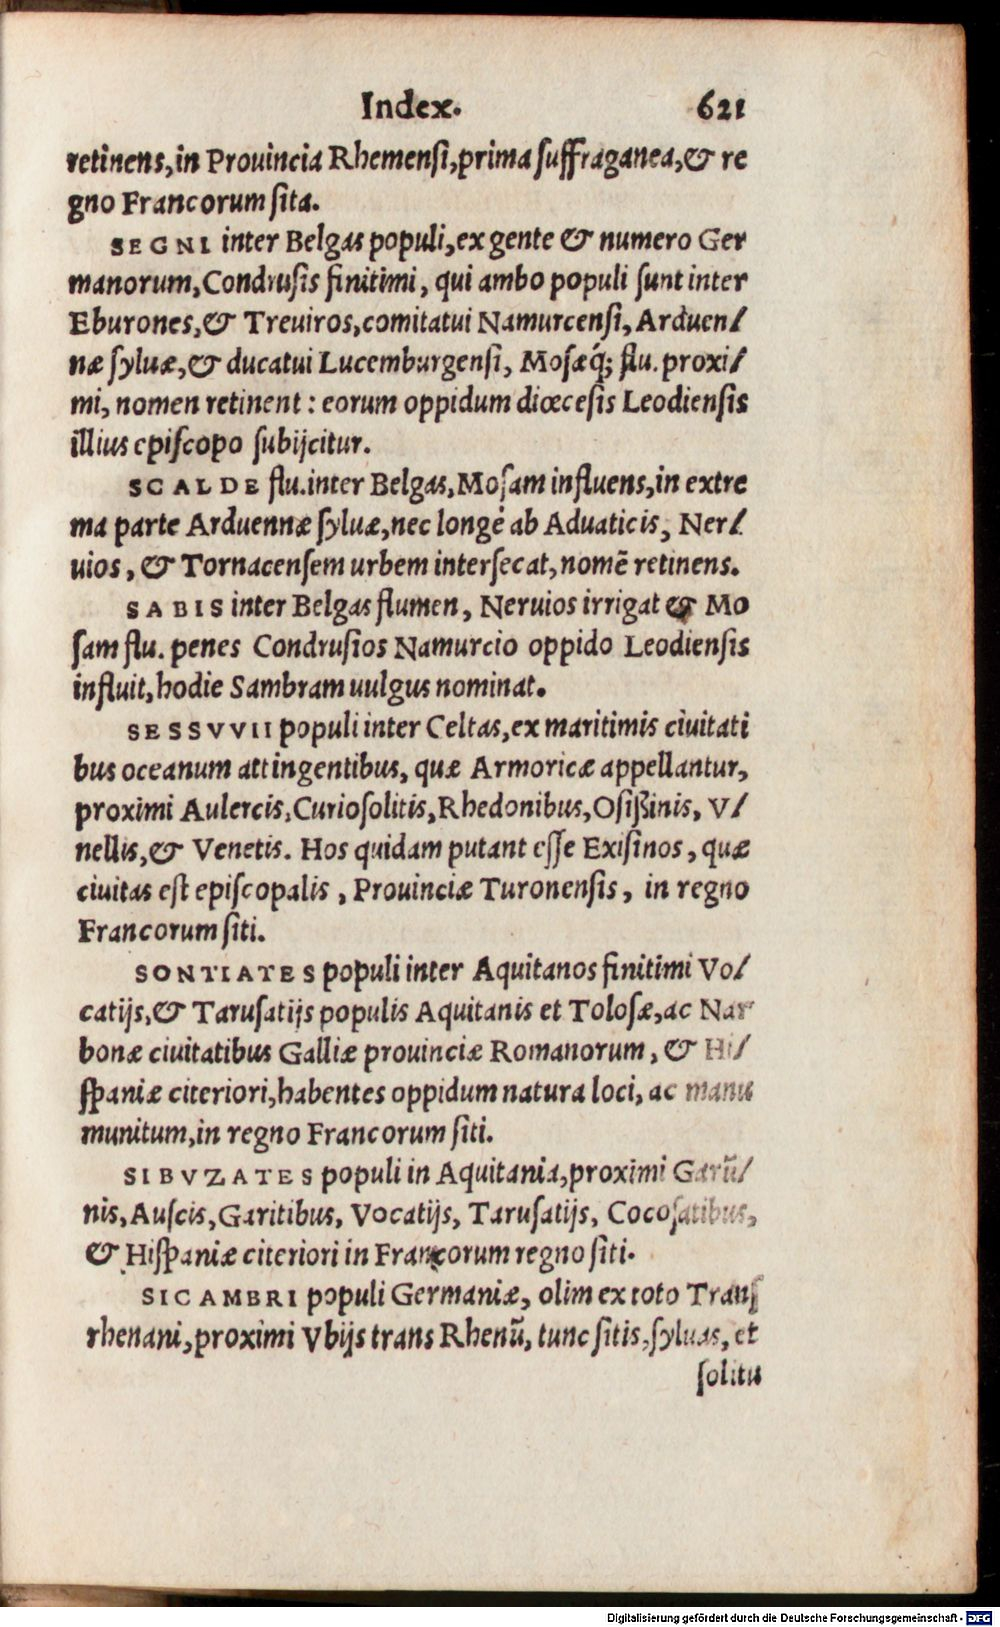 Index. 621
retinens, in Prouincia Rhemensi, prima suffraganea, & re
gno Francorum sita.
SEGNI inter Belgas populi, ex gente & numero Ger
manorum, Condrusis finitimi, qui ambo populi sunt inter
Eburones, & Treuiros, comitatui Namurcensi, Arduen/
næ syluæ, & ducatui Lucemburgensi, Mosæq́; flu. proxi/
mi, nomen retinent: eorum oppidum diœcesis Leodiensis
illius episcopo subijcitur.
SCALDE flu. inter Belgas, Mosam influens, in extre
ma parte Arduennæ syluæ, nec longè ab Aduaticis, Ner/
uios, & Tornacensem urbem intersecat, nomē retinens.
SABIS inter Belgas flumen, Neruios irrigat & Mo
sam flu. penes Condrusios Namurcio oppido Leodiensis
influit, hodie Sambram uulgus nominat.
SESSVVII populi inter Celtas, ex maritimis ciuitati
bus oceanum attingentibus, quæ Armoricæ appellantur,
proximi Aulercis, Curiosolitis, Rhedonibus, Osißinis, V/
nellis, & Venetis. Hos quidam putant esse Exisinos, quæ
ciuitas est episcopalis, Prouinciæ Turonensis, in regno
Francorum siti.
SONTIATES populi inter Aquitanos finitimi Vo/
catijs, & Tarusatijs populis Aquitanis et Tolosæ, ac Nar
bonæ ciuitatibus Galliæ prouinciæ Romanorum, & Hi/
spaniæ citeriori, habentes oppidum natura loci, ac manu
munitum, in regno Francorum siti.
SIBVZATES populi in Aquitania, proximi Garū/
nis, Auscis, Garitibus, Vocatijs, Tarusatijs, Cocosatibus,
& Hispaniæ citeriori in Francorum regno siti.
SICAMBRI populi Germaniæ, olim ex toto Trans
rhenani, proximi Vbijs trans Rhenū, tunc sitis, syluas, et
solitu
Digitalisierung gefördert durch die Deutsche Forschungsgemeinschaft - DFG